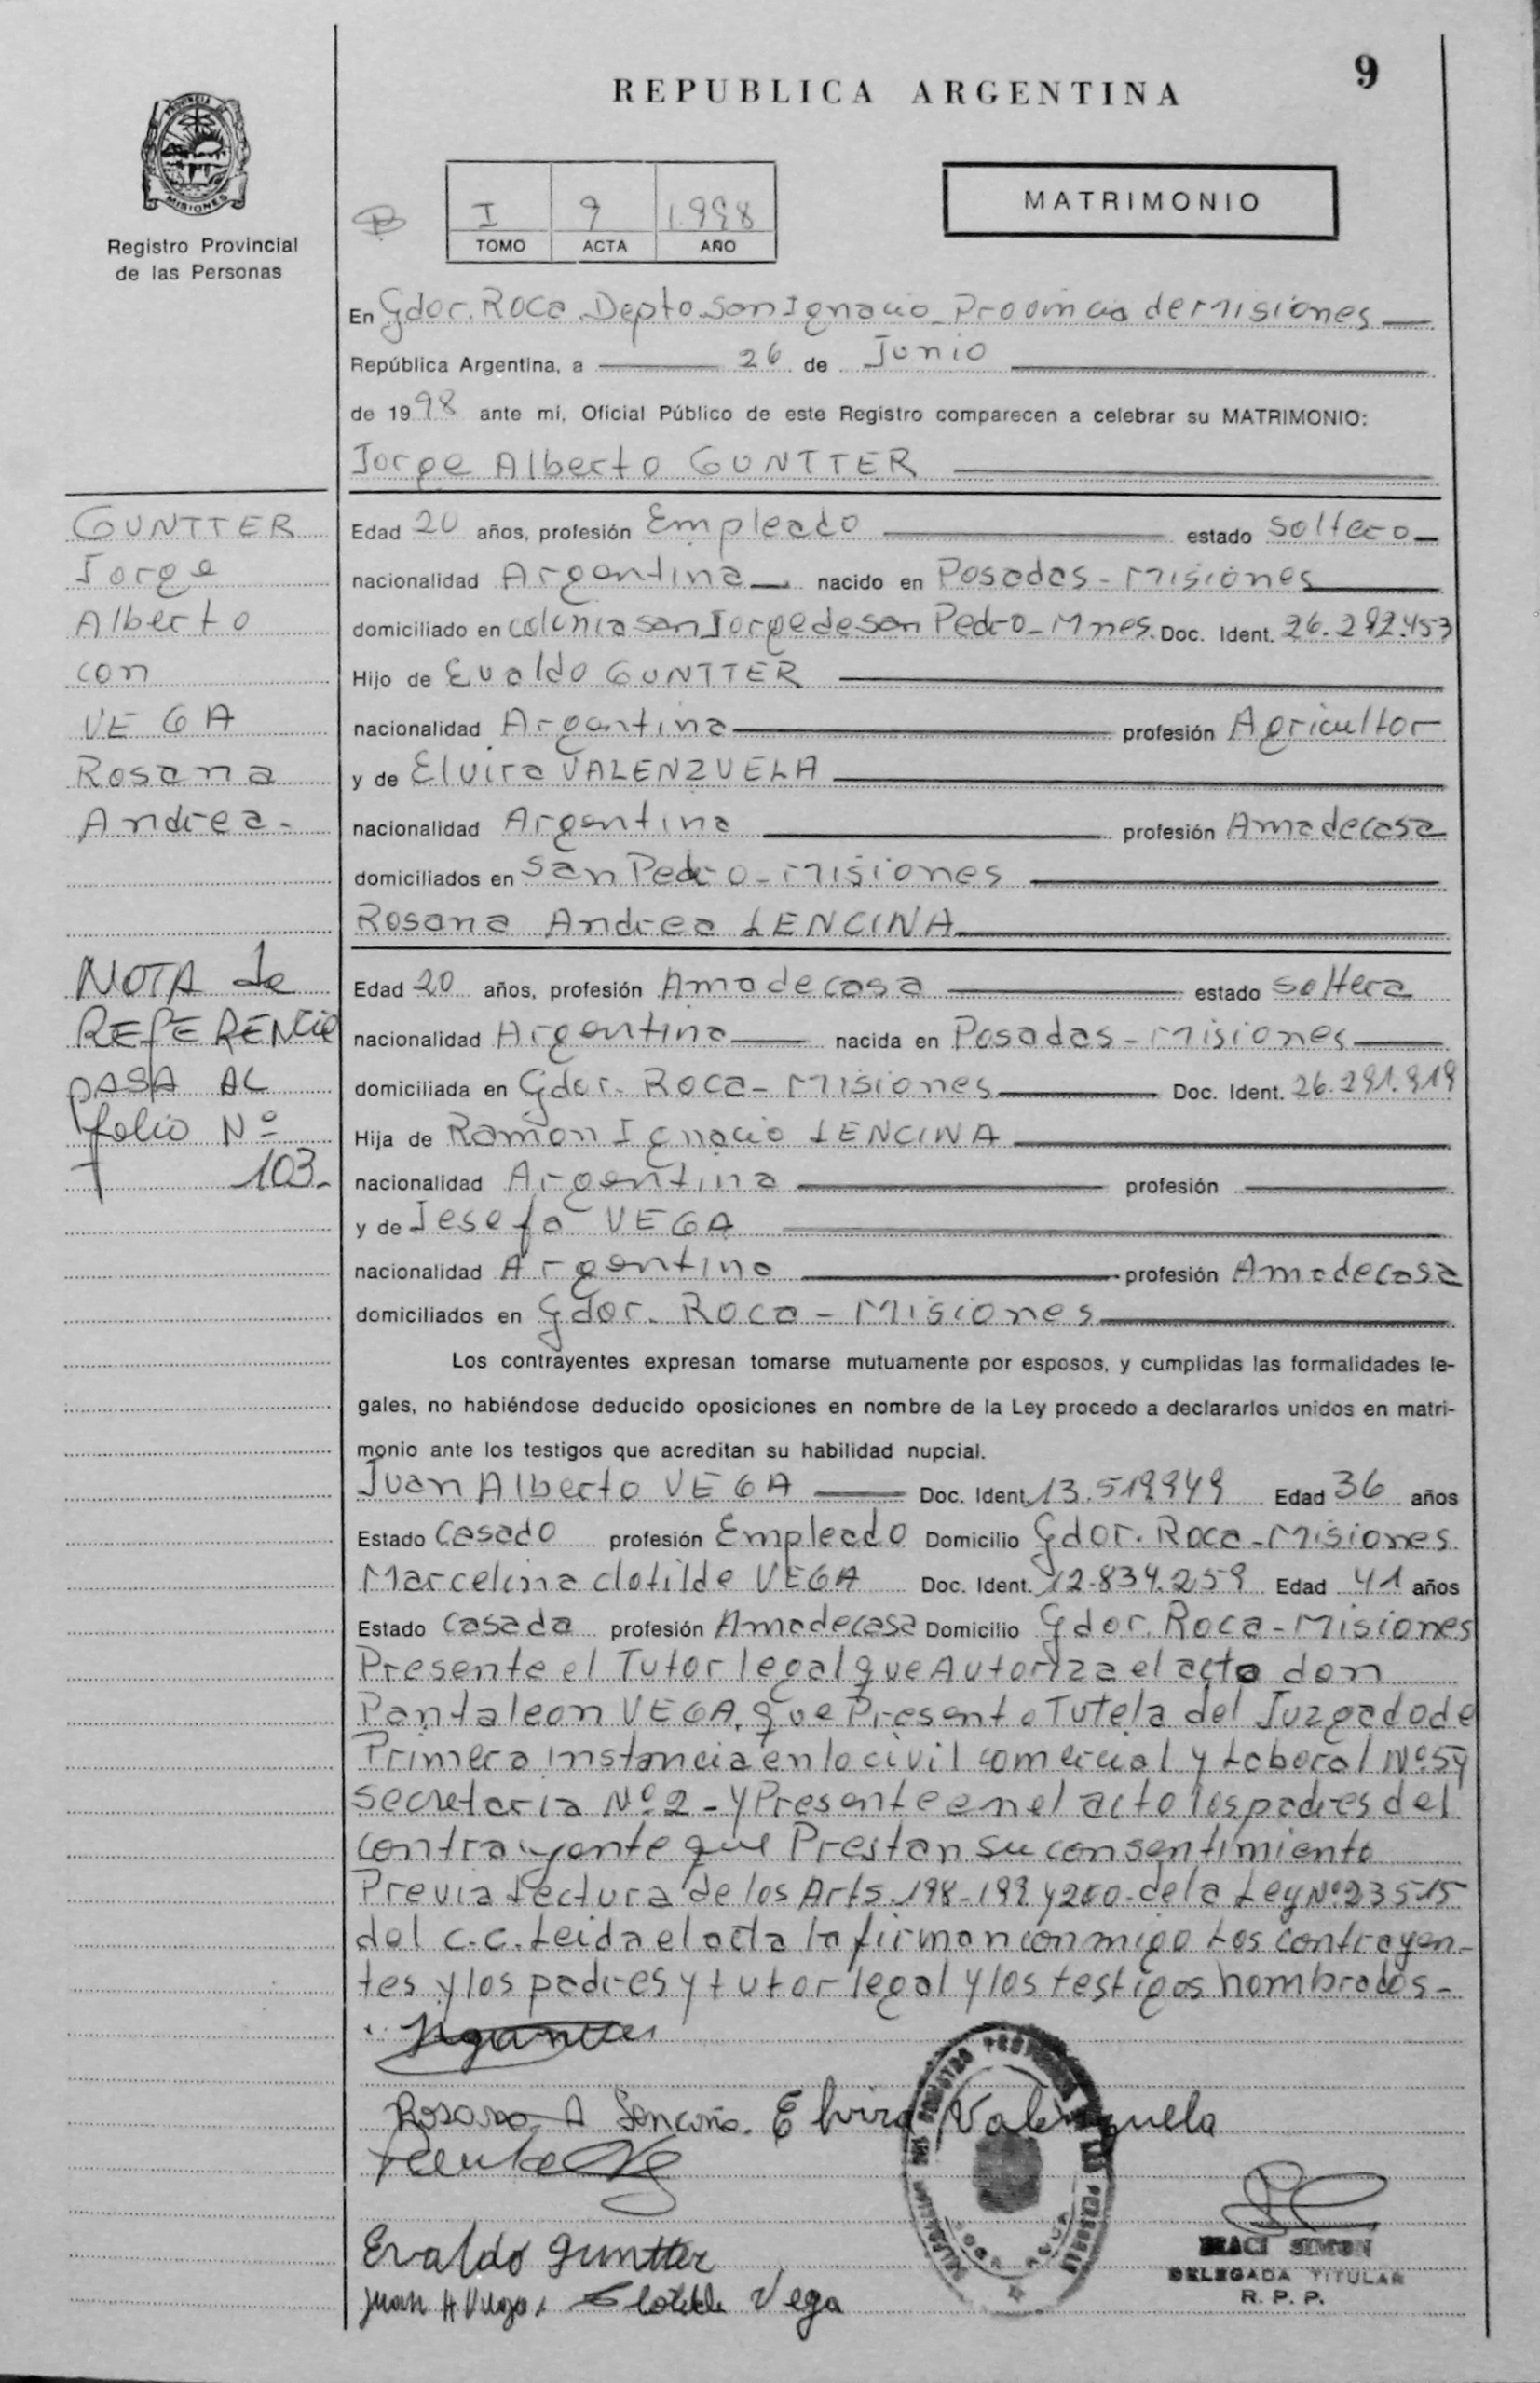 9
REPUBLICA ARGENTINA
PROVINCIA DE
MISIONES
Registro Provincial
de las Personas
I 9 1.998
TOMO ACTA AÑO
MATRIMONIO
En Gdor. Roca Depto San Ignacio Provincia de Misiones
República Argentina, a 26 de Junio
de 1998 ante mí, Oficial Público de este Registro comparecen a celebrar su MATRIMONIO:
Jorge Alberto GUNTTER
GUNTTER
Jorge
Alberto
con
VEGA
Rosana
Andrea -
NOTA de
REFERENCIA
PASA AL
folio Nº
103.-
Edad 20 años, profesión Empleado estado soltero
nacionalidad Argentina nacido en Posadas - Misiones
domiciliado en colonia san Jorge de san Pedro - Mnes. Doc. Ident. 26.292.453
Hijo de Evaldo GUNTTER
nacionalidad Argentina profesión Agricultor
y de Elvira VALENZUELA
nacionalidad Argentina profesión Ama de casa
domiciliados en San Pedro - Misiones
Rosana Andrea LENCINA
Edad 20 años, profesión Ama de casa estado soltera
nacionalidad Argentina nacida en Posadas - Misiones
domiciliada en Gdor. Roca - Misiones Doc. Ident. 26.291.919
Hija de Ramon Ignacio LENCINA
nacionalidad Argentina profesión
y de Josefa VEGA
nacionalidad Argentina profesión Ama de casa
domiciliados en Gdor. Roca - Misiones
Los contrayentes expresan tomarse mutuamente por esposos, y cumplidas las formalidades le-
gales, no habiéndose deducido oposiciones en nombre de la Ley procedo a declararlos unidos en matri-
monio ante los testigos que acreditan su habilidad nupcial.
Juan Alberto VEGA Doc. Ident. 13.519949 Edad 36 años
Estado Casado profesión Empleado Domicilio Gdor. Roca - Misiones
Marcelina Clotilde VEGA Doc. Ident. 12.834.259 Edad 41 años
Estado Casada profesión Ama de casa Domicilio Gdor. Roca - Misiones
Presente el Tutor legal que Autoriza el acto don
Pantaleon VEGA, que Presento Tutela del Juzgado de
Primera instancia en lo civil comercial y Laboral Nº 5 y
secretaria Nº 2 - y Presente en el acto los padres del
contrayente que Prestan su consentimiento
Previa Lectura de los Arts. 198-199 y 200 - de la Ley Nº 23515
del C.C. Leida el acta la firman conmigo Los contrayen-
tes y los padres y tutor legal y los testigos nombrados -
Rosana A Lencina. Elvira Valenzuela
Evaldo Guntter
Juan A Vega. Clotilde Vega
SIMON
DELEGADA TITULAR
R. P. P.